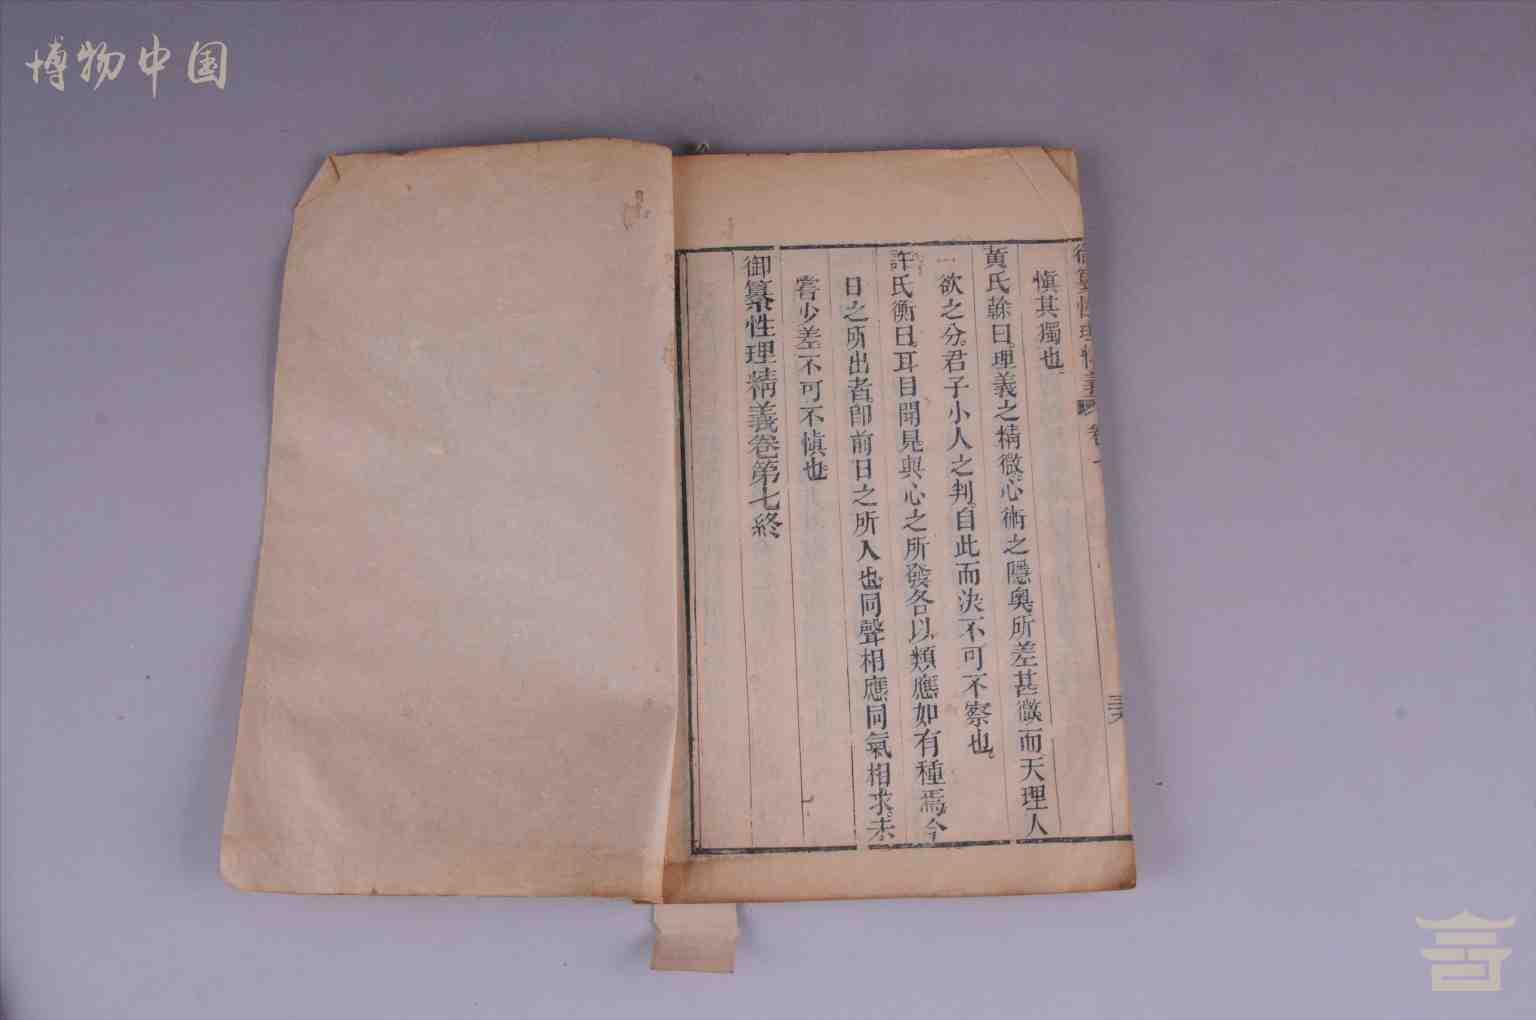 博物中国
御纂性理精義 卷七
慎其獨也
黃氏榦曰理義之精微心術之隱奧所差甚微而天理人
欲之分君子小人之判自此而決不可不察也
許氏衡曰耳目聞見與心之所發各以類應如有種焉今
日之所出者即前日之所入也同聲相應同氣相求未
嘗少差不可不慎也
御纂性理精義卷第七終